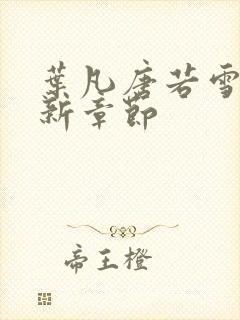 葉凡唐若雪
新章節
帝王橙